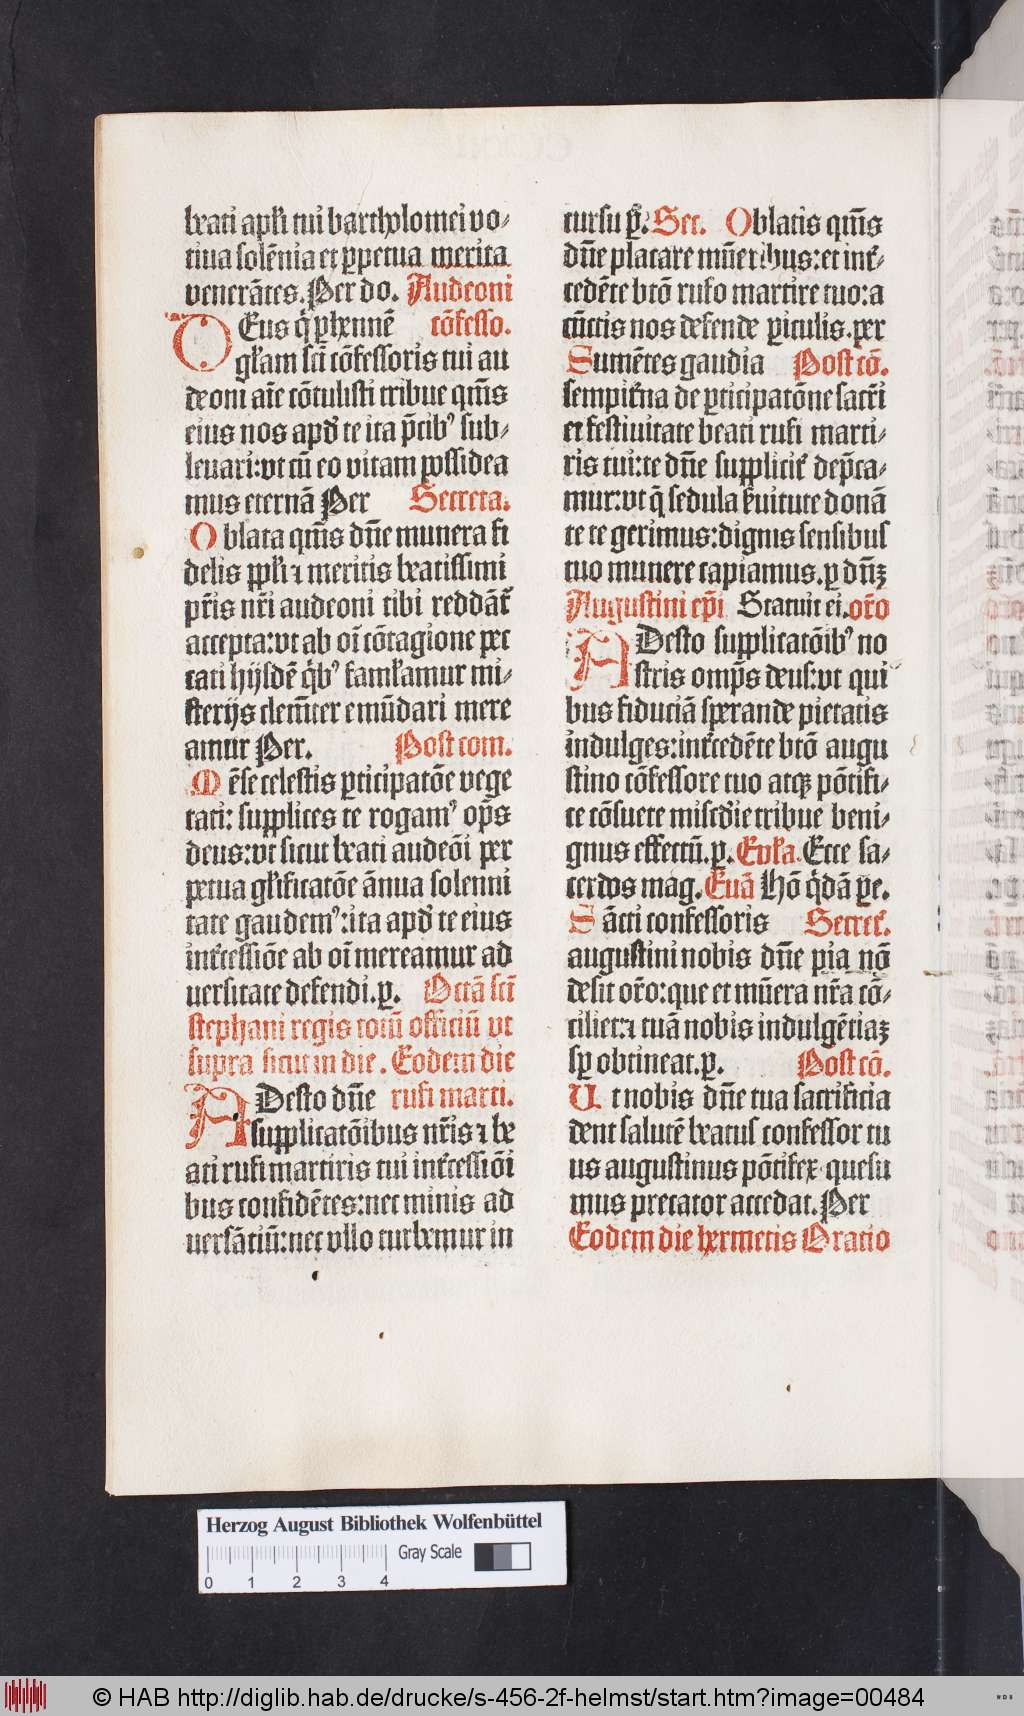 beati apl̃i tui bartholomei vo-
tiua solẽnia et ꝑpetua merita
venerãtes. Per do. Audeoni
DEus q̇ ꝑhennẽ cõfesso.
gl̃iam sc̃i cõfessoris tui au
deoni aĩe cõtulisti tribue qũs
eius nos apd̓ te ita p̃cibꝰ sub-
leuari: vt cũ eo vitam possidea
mus eternã Per Secreta.
Oblata qũs dñe munera fi
delis ppl̃i ⁊ meritis beatissimi
p̃ris nr̃i audeoni tibi reddãt᷑
accepta: vt ab oĩ cõtagione pec
cati hijsdẽ q̇bꝰ famĺamur mi-
sterijs clemẽter emũdari mere
amur Per. Post com.
Mẽse celestis ꝑticipatõe vege
tati: supplices te rogamꝰ op̃s
deus: vt sicut beati audeõi per
petua gl̃ificatõe ãnua solenni
tate gaudemꝰ: ita apd̓ te eius
int̓cessiõe ab oĩ mereamur ad
uersitate defendi. ꝑ. Octã sc̃i
stephani regis totũ officiũ vt
supra sicut in die. Eodem die
ADesto dñe rufi marti.
supplicatõibus nr̃is ⁊ be
ati rufi martiris tui int̓cessiõi
bus confidẽtes: nec minis ad
uersãtiũ: nec vllo turbemur in
cursu ꝑ. Sec. Oblatis qũs
dñe placare mũeribus: et int̓-
cedẽte btõ rufo martire tuo: a
cũctis nos defende ꝑiculis. per
Sumẽtes gaudia Post cõ.
sempit̓na de ꝑticipatõne sacr̃i
et festiuitate beati rufi marti-
ris tui: te dñe supplicit̓ dep̃ca-
mur: vt q̃ sedula s̓uitute donã
te te gerimus: dignis sensibus
tuo munere capiamus. ꝑ dñꝫ
Augustini ep̃i Statuit ei. or̃o
ADesto supplicatõibꝰ no
stris omp̃s deus: vt qui
bus fiduciã sperande pietatis
indulges: int̓cedẽte btõ augu
stino cõfessore tuo atqꝫ põtifi-
ce cõsuete mis̃cdie tribue beni-
gnus effectũ. ꝑ. Epl̃a. Ecce sa-
cerdos mag. Euã Hõ q̇dã ꝑe.
Sãcti confessoris Secret̓.
augustini nobis dñe pia nõ
desit or̃o: que et mũera nr̃a cõ-
ciliet: ⁊ tuã nobis indulgẽtiaꝫ
sꝑ obtineat. ꝑ. Post cõ.
Vt nobis dñe tua sacrificia
dent salutẽ beatus confessor tu
us augustinus põtifex quesu
mus precator accedat. Per
Eodem die hermetis Oratio
Herzog August Bibliothek Wolfenbüttel
Gray Scale
0 1 2 3 4
© HAB http://diglib.hab.de/drucke/s-456-2f-helmst/start.htm?image=00484